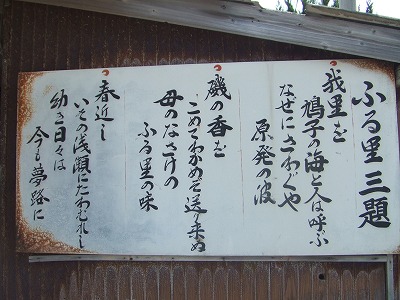 ふる里三題
我里を
鳩子の海と人は呼ぶ
なぜにさわぐや
原発の波
磯の香を
このてわかめぞ送り来ぬ
母のなさけの
ふる里の味
春近し
いその浅瀬にたわむれし
幼き日々は
今も夢路に